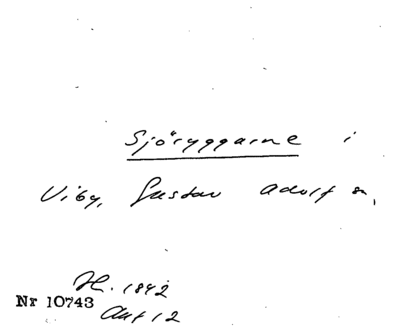 Sjöryggarne i
Viby, Gustav Adolf sn,
H. 1842
Nr 10743
Akt 12